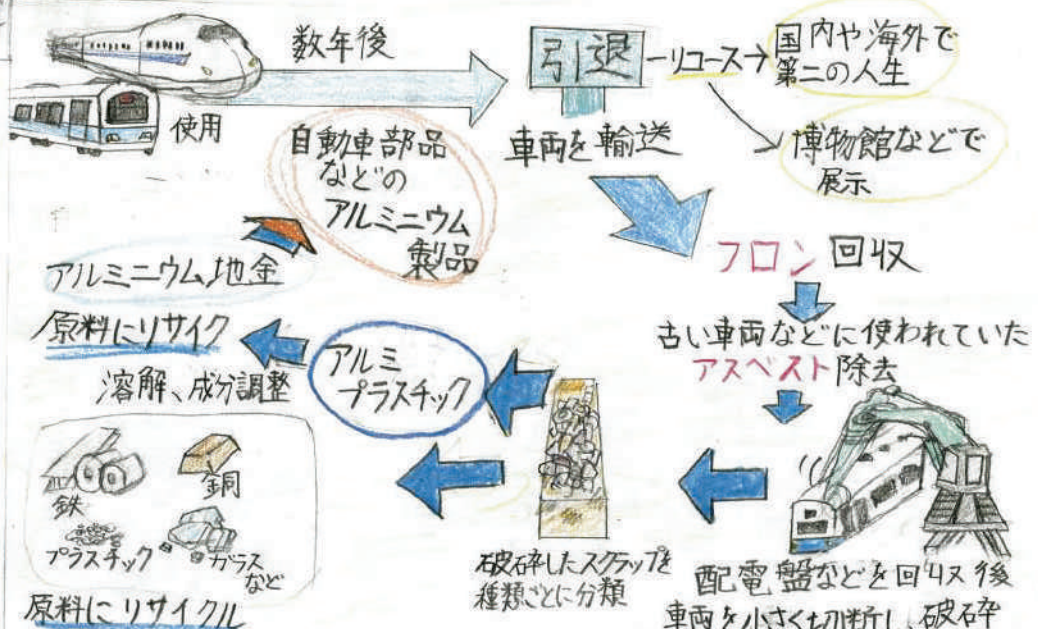 使用
数年後
引退
リユース
国内や海外で
第二の人生
博物館などで
展示
車両を輸送
フロン回収
古い車両などに使われていた
アスベスト除去
配電盤などを回収後
車両を小さく切断し、破砕
破砕したスクラップを
種類ごとに分類
アルミ
プラスチック
原料にリサイク
溶解、成分調整
アルミニウム地金
自動車部品
などの
アルミニウム
製品
鉄
銅
プラスチック
ガラス
など
原料にリサイクル